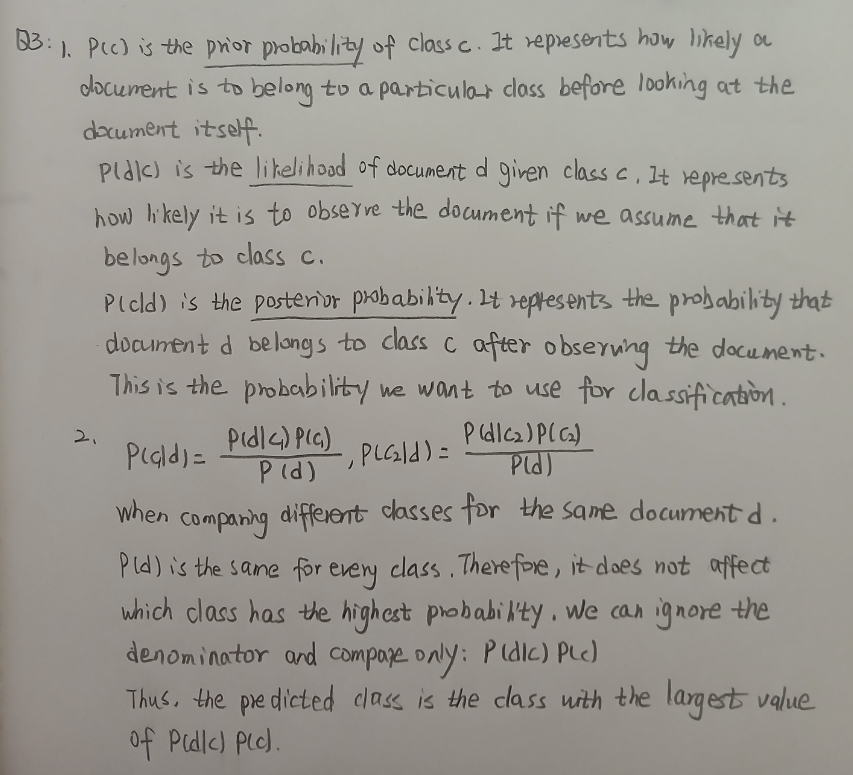 Q3: 1. P(c) is the prior probability of class c. It represents how likely a
document is to belong to a particular class before looking at the
document itself.
P(d|c) is the likelihood of document d given class c. It represents
how likely it is to observe the document if we assume that it
belongs to class c.
P(c|d) is the posterior probability. It represents the probability that
document d belongs to class c after observing the document.
This is the probability we want to use for classification.
2. P(c₁|d) = P(d|c₁)P(c₁) / P(d), P(c₂|d) = P(d|c₂)P(c₂) / P(d)
When comparing different classes for the same document d.
P(d) is the same for every class. Therefore, it does not affect
which class has the highest probability. We can ignore the
denominator and compare only: P(d|c) P(c)
Thus, the predicted class is the class with the largest value
of P(d|c) P(c).